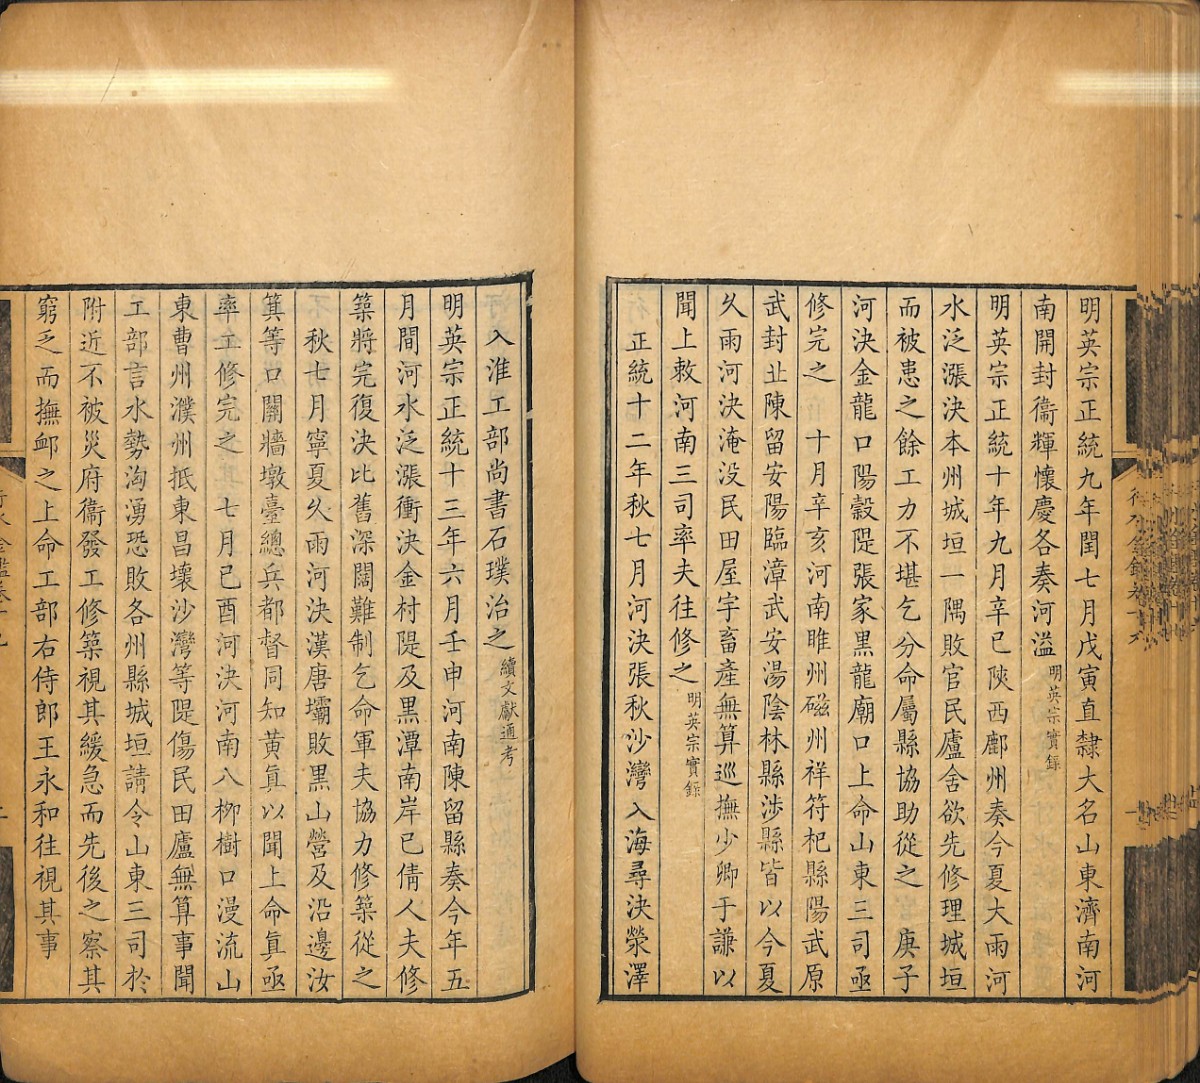 明英宗正統九年閏七月戊寅直隸大名山東濟南河
南開封衞輝懷慶各奏河溢明英宗實錄
明英宗正統十年九月辛巳陝西鄜州奏今夏大雨河
水泛漲決本州城垣一隅敗官民廬舍欲先修理城垣
而被患之餘工力不堪乞分命屬縣協助從之 庚子
河決金龍口陽穀隄張家黑龍廟口上命山東三司亟
修完之 十月辛亥河南睢州磁州祥符杞縣陽武原
武封丘陳留安陽臨漳武安湯陰林縣涉縣皆以今夏
久雨河決淹没民田屋宇畜產無算巡撫少卿于謙以
聞上敕河南三司率夫往修之明英宗實錄
正統十二年秋七月河決張秋沙灣入海尋決滎澤
入淮工部尚書石璞治之續文獻通考
明英宗正統十三年六月壬申河南陳留縣奏今年五
月間河水泛漲衝決金村隄及黑潭南岸已倩人夫修
築將完復決比舊深闊難制乞命軍夫協力修築從之
秋七月寧夏久雨河決漢唐壩敗黑山營及沿邊汝
箕等口關牆墩臺總兵都督同知黃眞以聞上命眞亟
率工修完之 七月己酉河決河南八柳樹口漫流山
東曹州濮州抵東昌壞沙灣等隄傷民田廬無算事聞
工部言水勢洶湧恐敗各州縣城垣請令山東三司於
附近不被災府衞發工修築視其緩急而先後之察其
窮乏而撫卹之上命工部右侍郎王永和往視其事